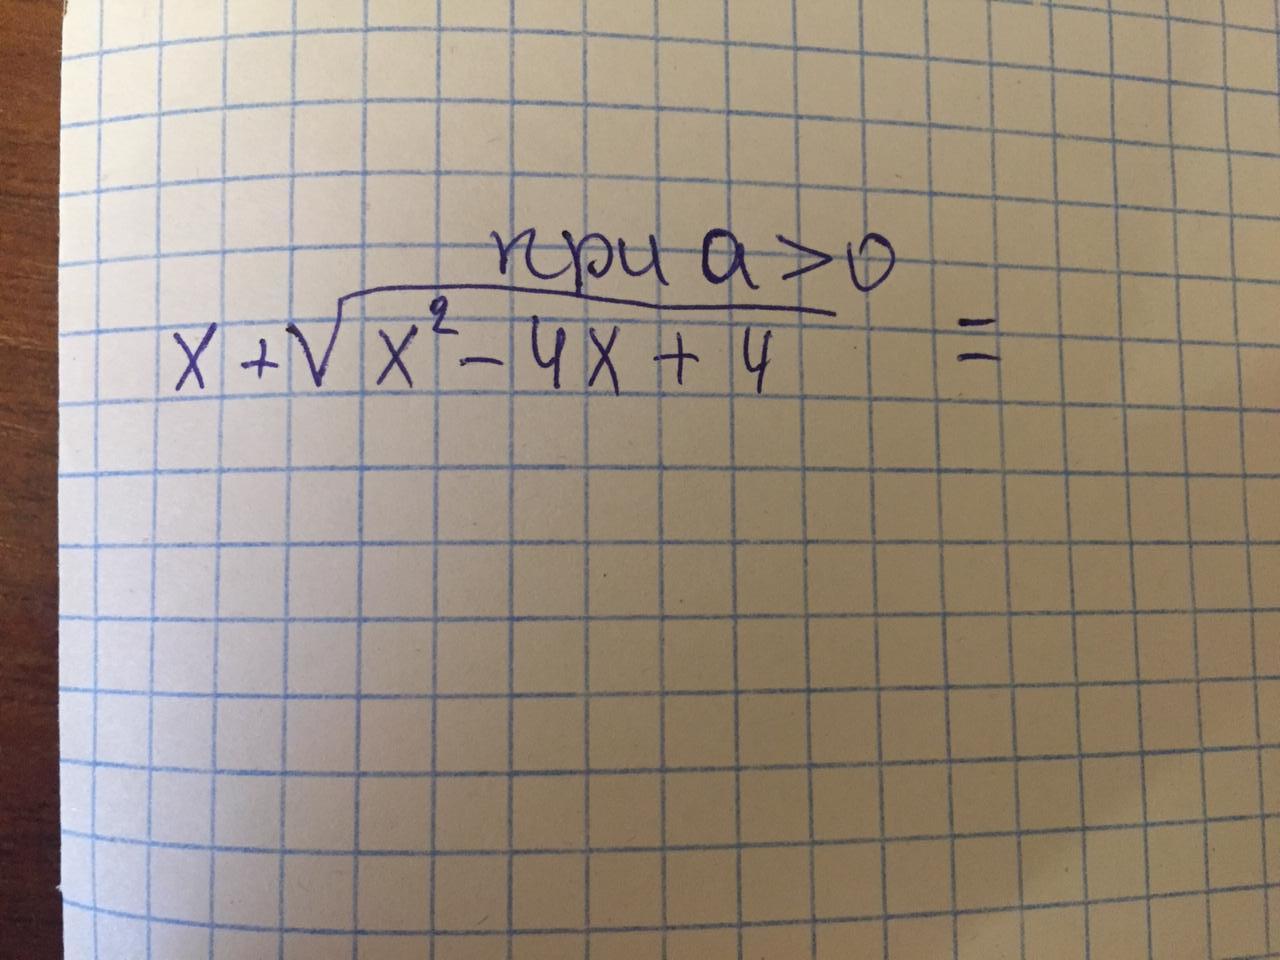 при a > 0
x + √x² - 4x + 4 =